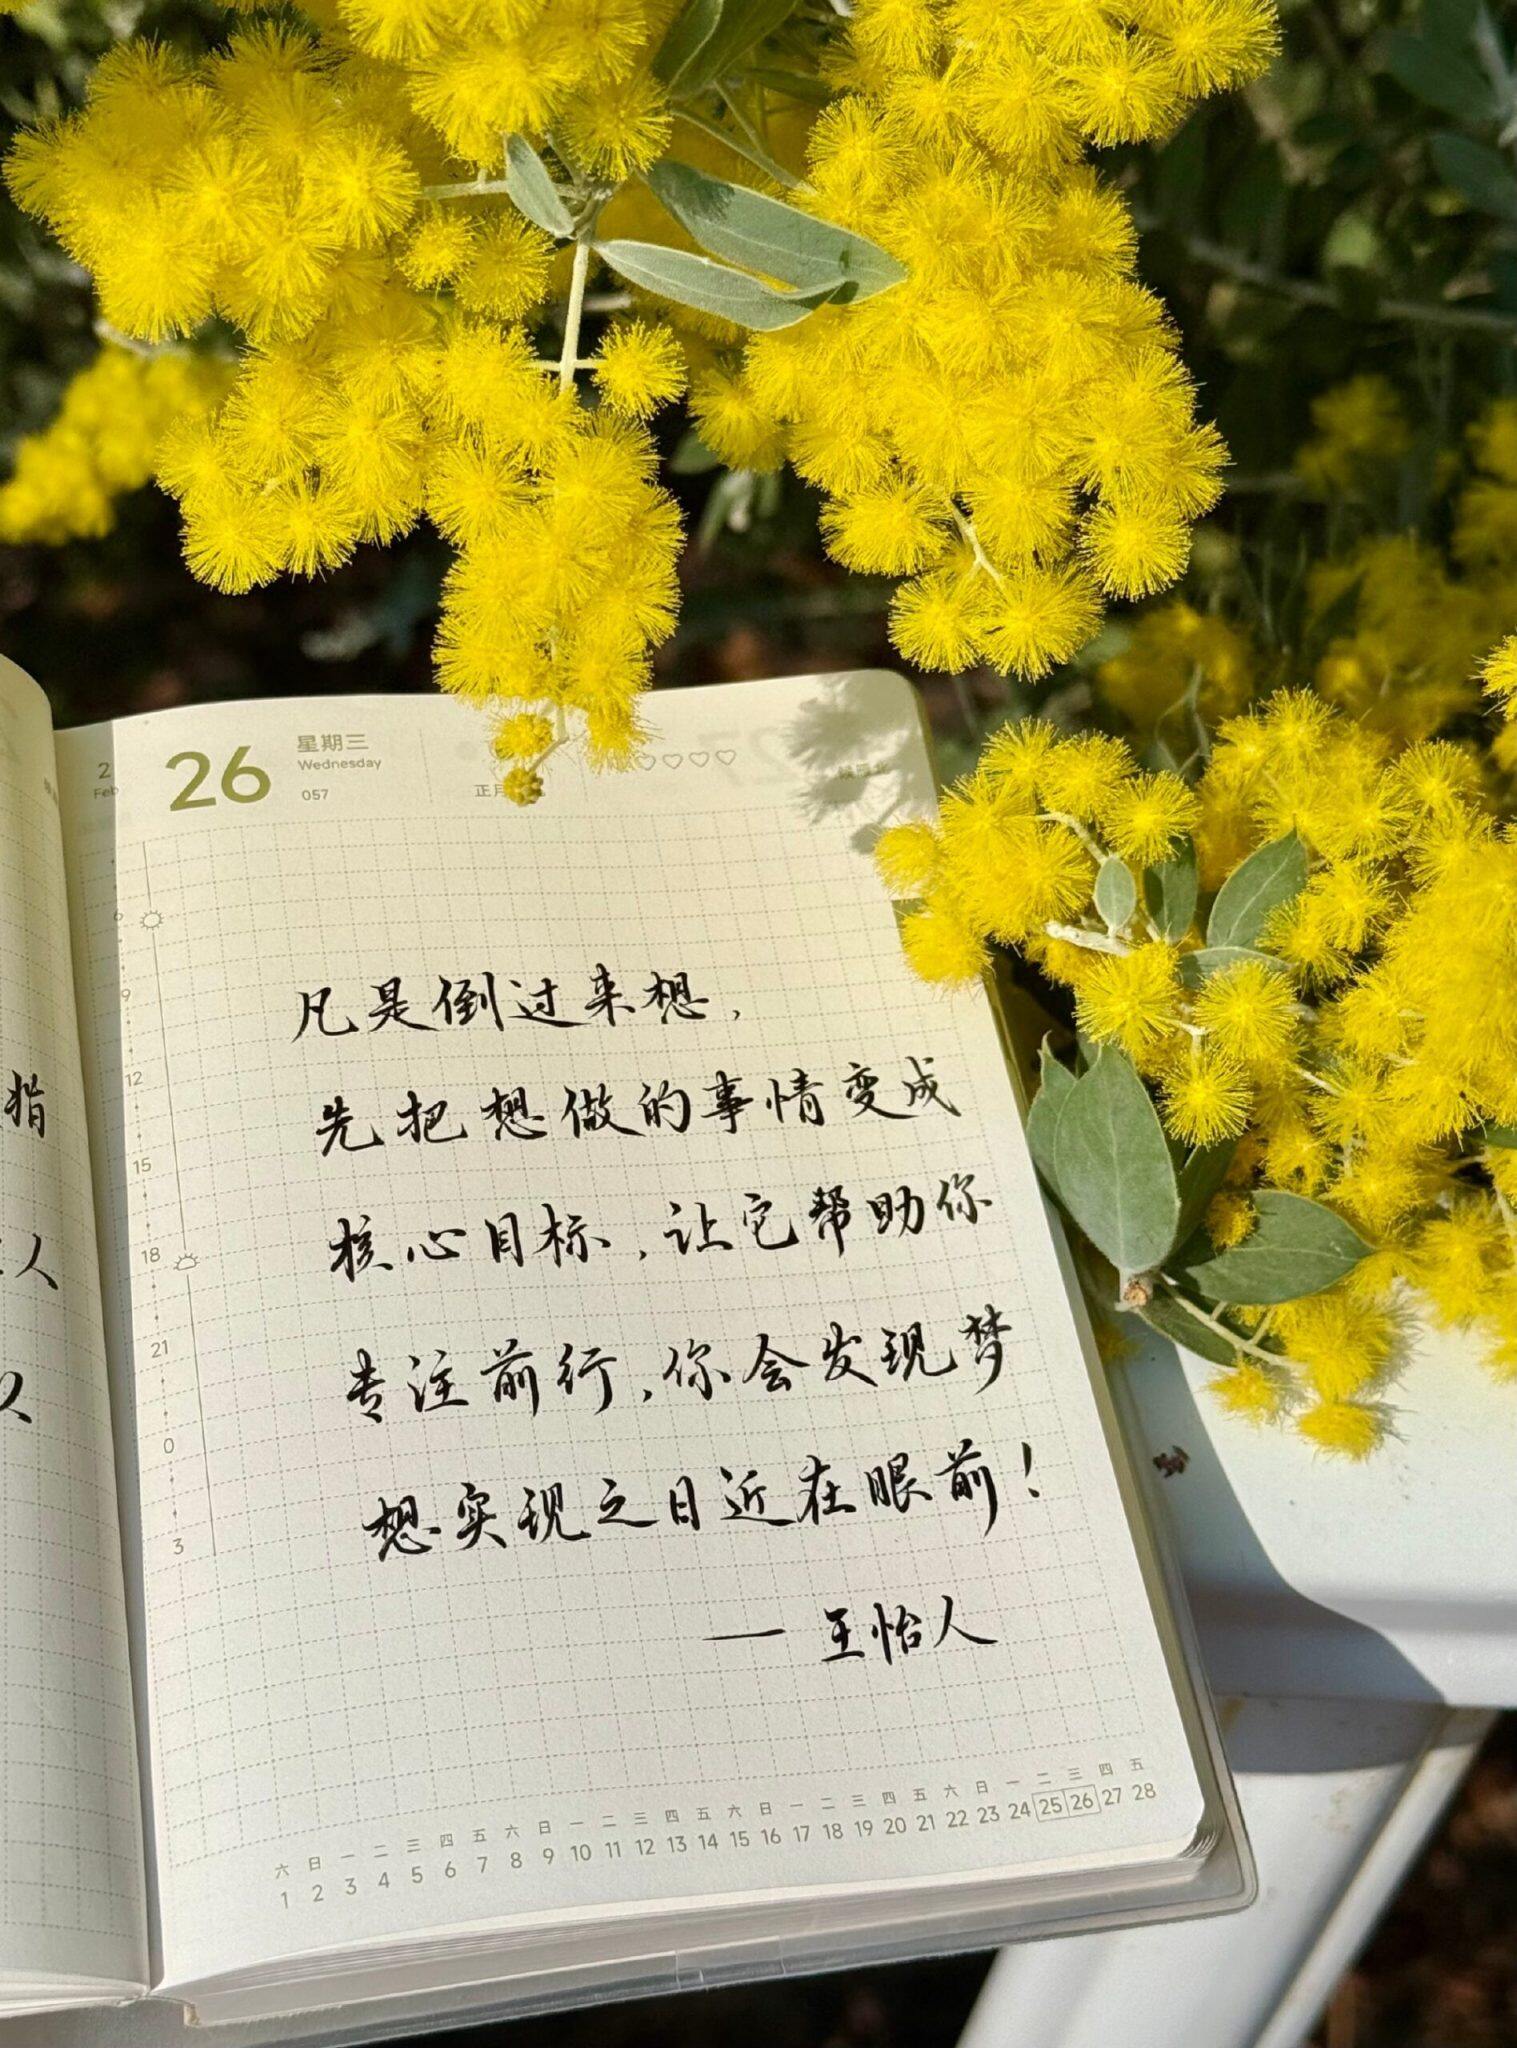 2
Feb
26
星期三
Wednesday
057
正月
6
9
12
15
18
21
0
3
指
人
凡是倒过来想,
先把想做的事情变成
核心目标,让它帮助你
专注前行,你会发现梦
想实现之日近在眼前!
— 王怡人
六 日 一 二 三 四 五 六 日 一 二 三 四 五 六 日 一 二 三 四 五 六 日 一 二 三 四 五
1 2 3 4 5 6 7 8 9 10 11 12 13 14 15 16 17 18 19 20 21 22 23 24 25 26 27 28